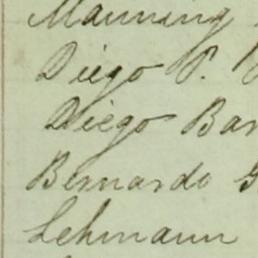 Manning
Diego P.
Diego Bar
Bernardo G
Lehmann